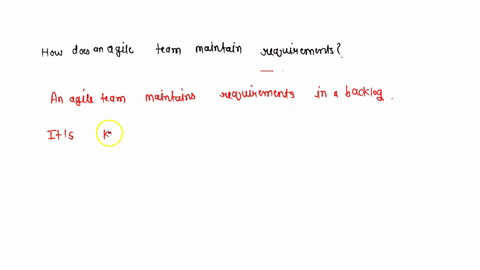 How does an agile team maintain requirements?
An agile team maintains requirements in a backlog.
It is k